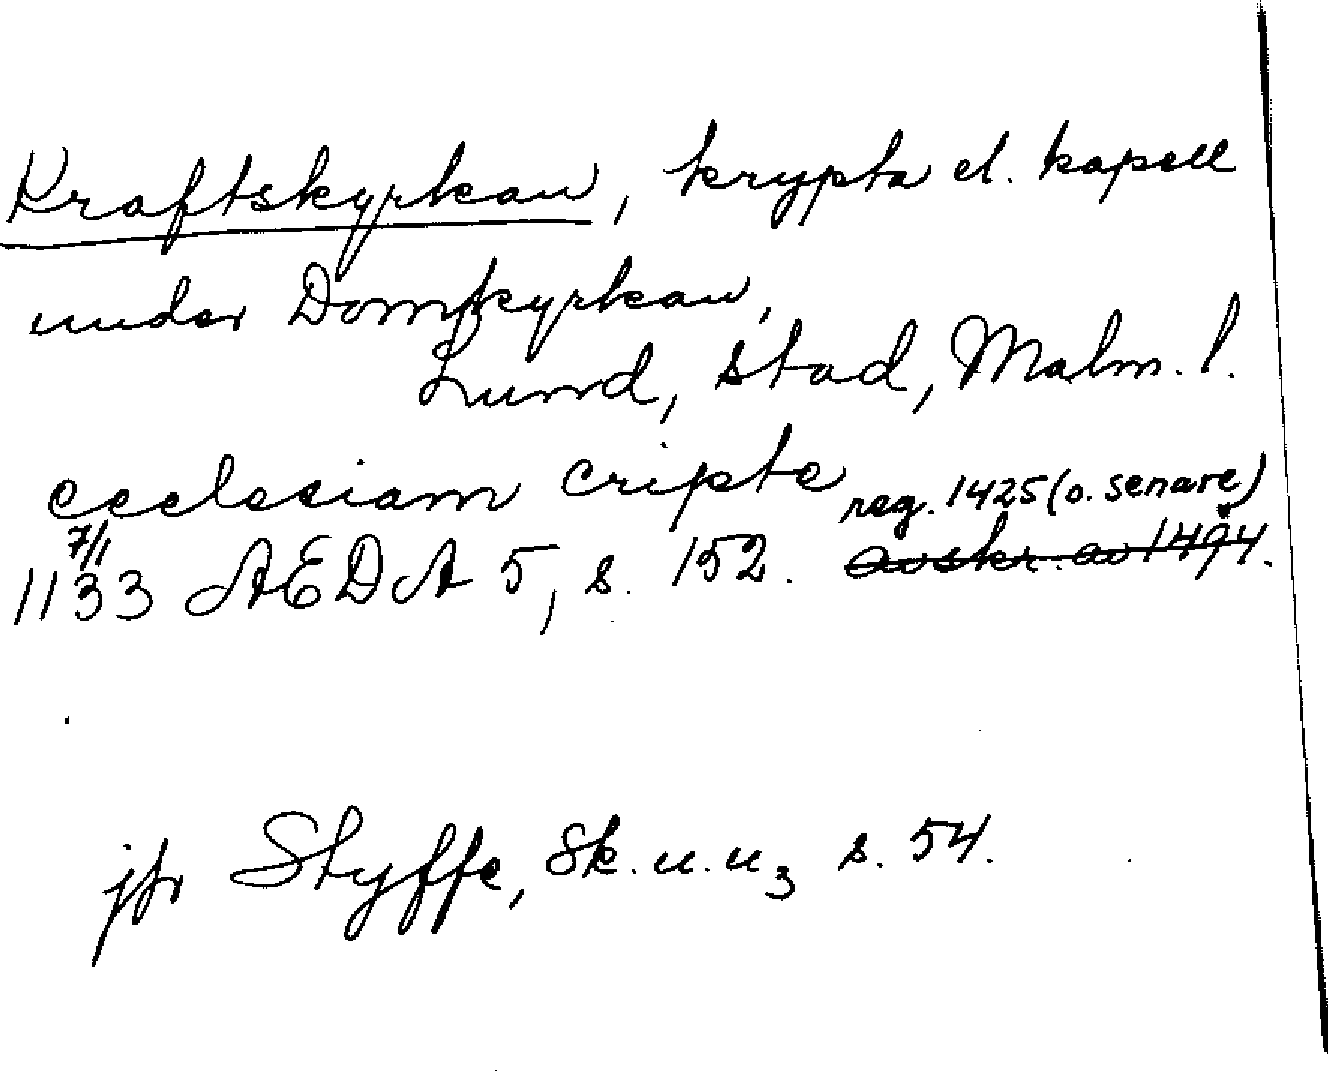 Kraftskyrkan, krypta el. kapell
under Domkyrkan,
Lund, stad, Malm. l.
ecclesiam cripte reg. 1425 (o. senare)
7/1
1133 AEDA 5, s. 152. avskr. av 1494.
jfr Styffe, Sk. u. u3 s. 54.